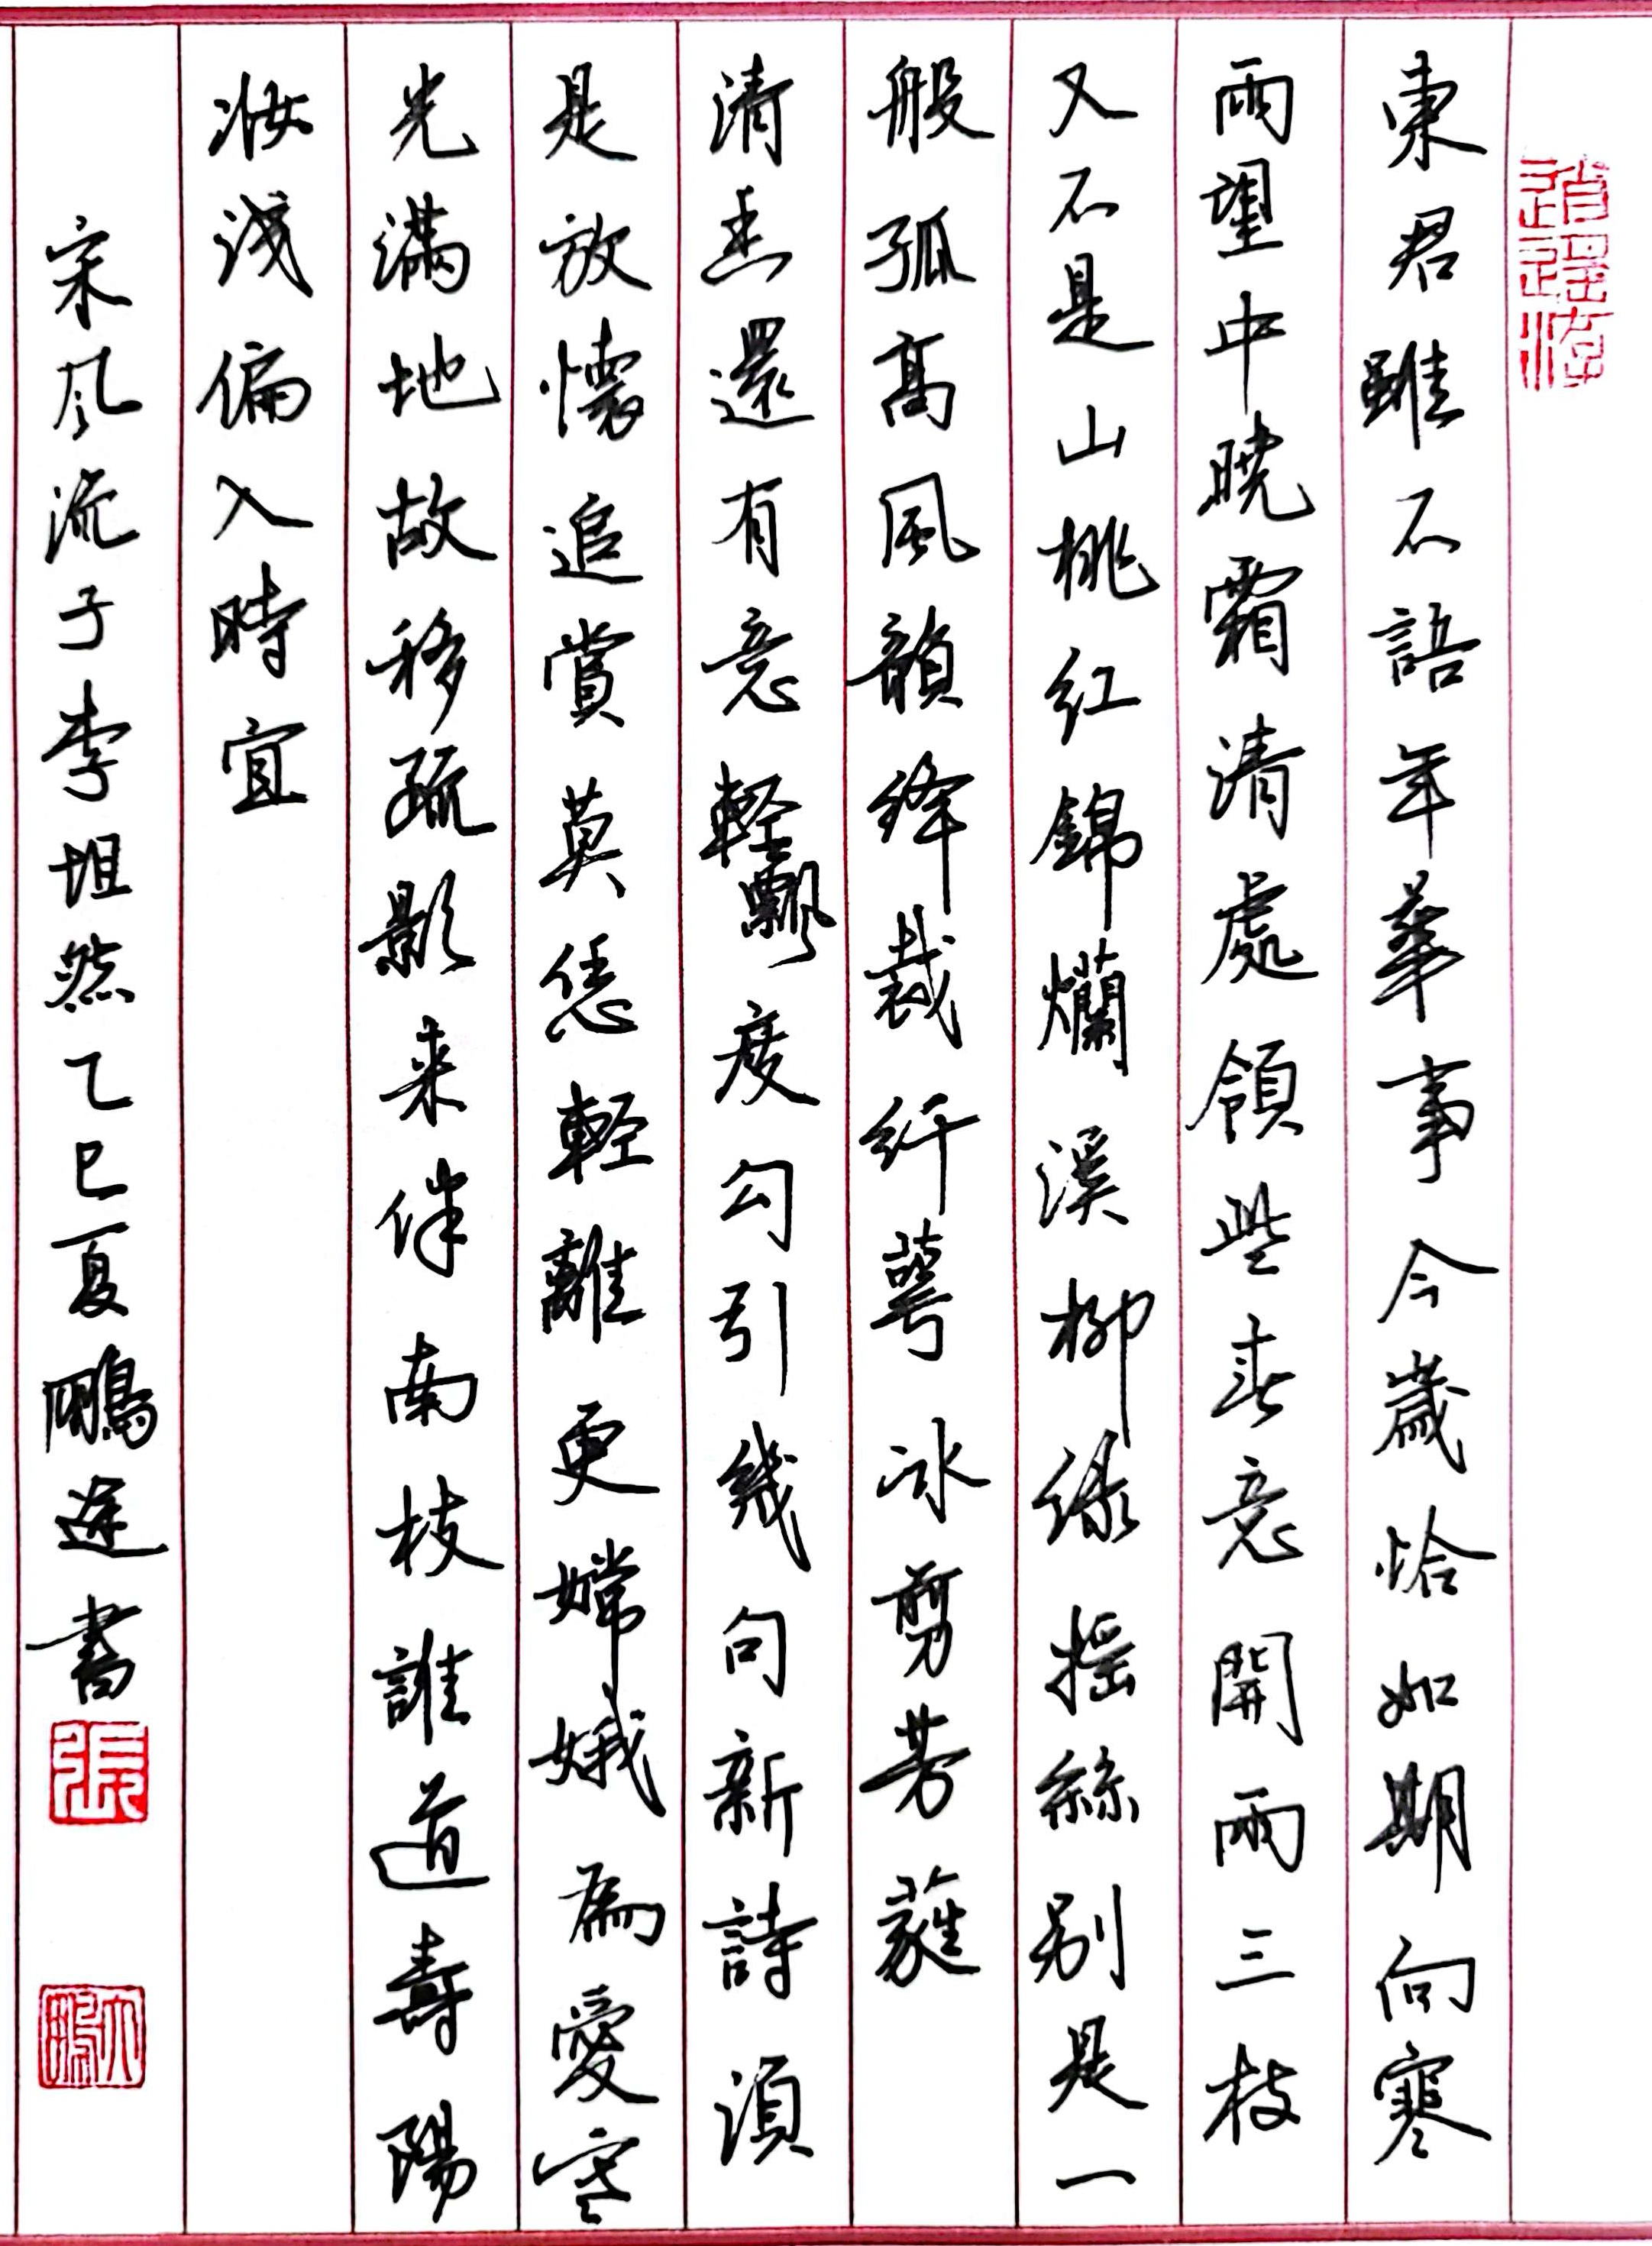 逍遥游
東君雖不語年華事今歲恰如期向寒
雨望中曉霜清處領些春意開兩三枝
又不是山桃紅錦爛溪柳緑摇絲别是一
般孤高風韻絳裁纤萼冰剪芳蕤
清香還有意輕飄度勾引幾句新詩須
是放懷追賞莫恁輕離更嫦娥為愛寒
光滿地故移疏影来伴南枝誰道壽陽
妝淺偏入時宜
宋风流子李坦然乙巳夏鵬途書
張